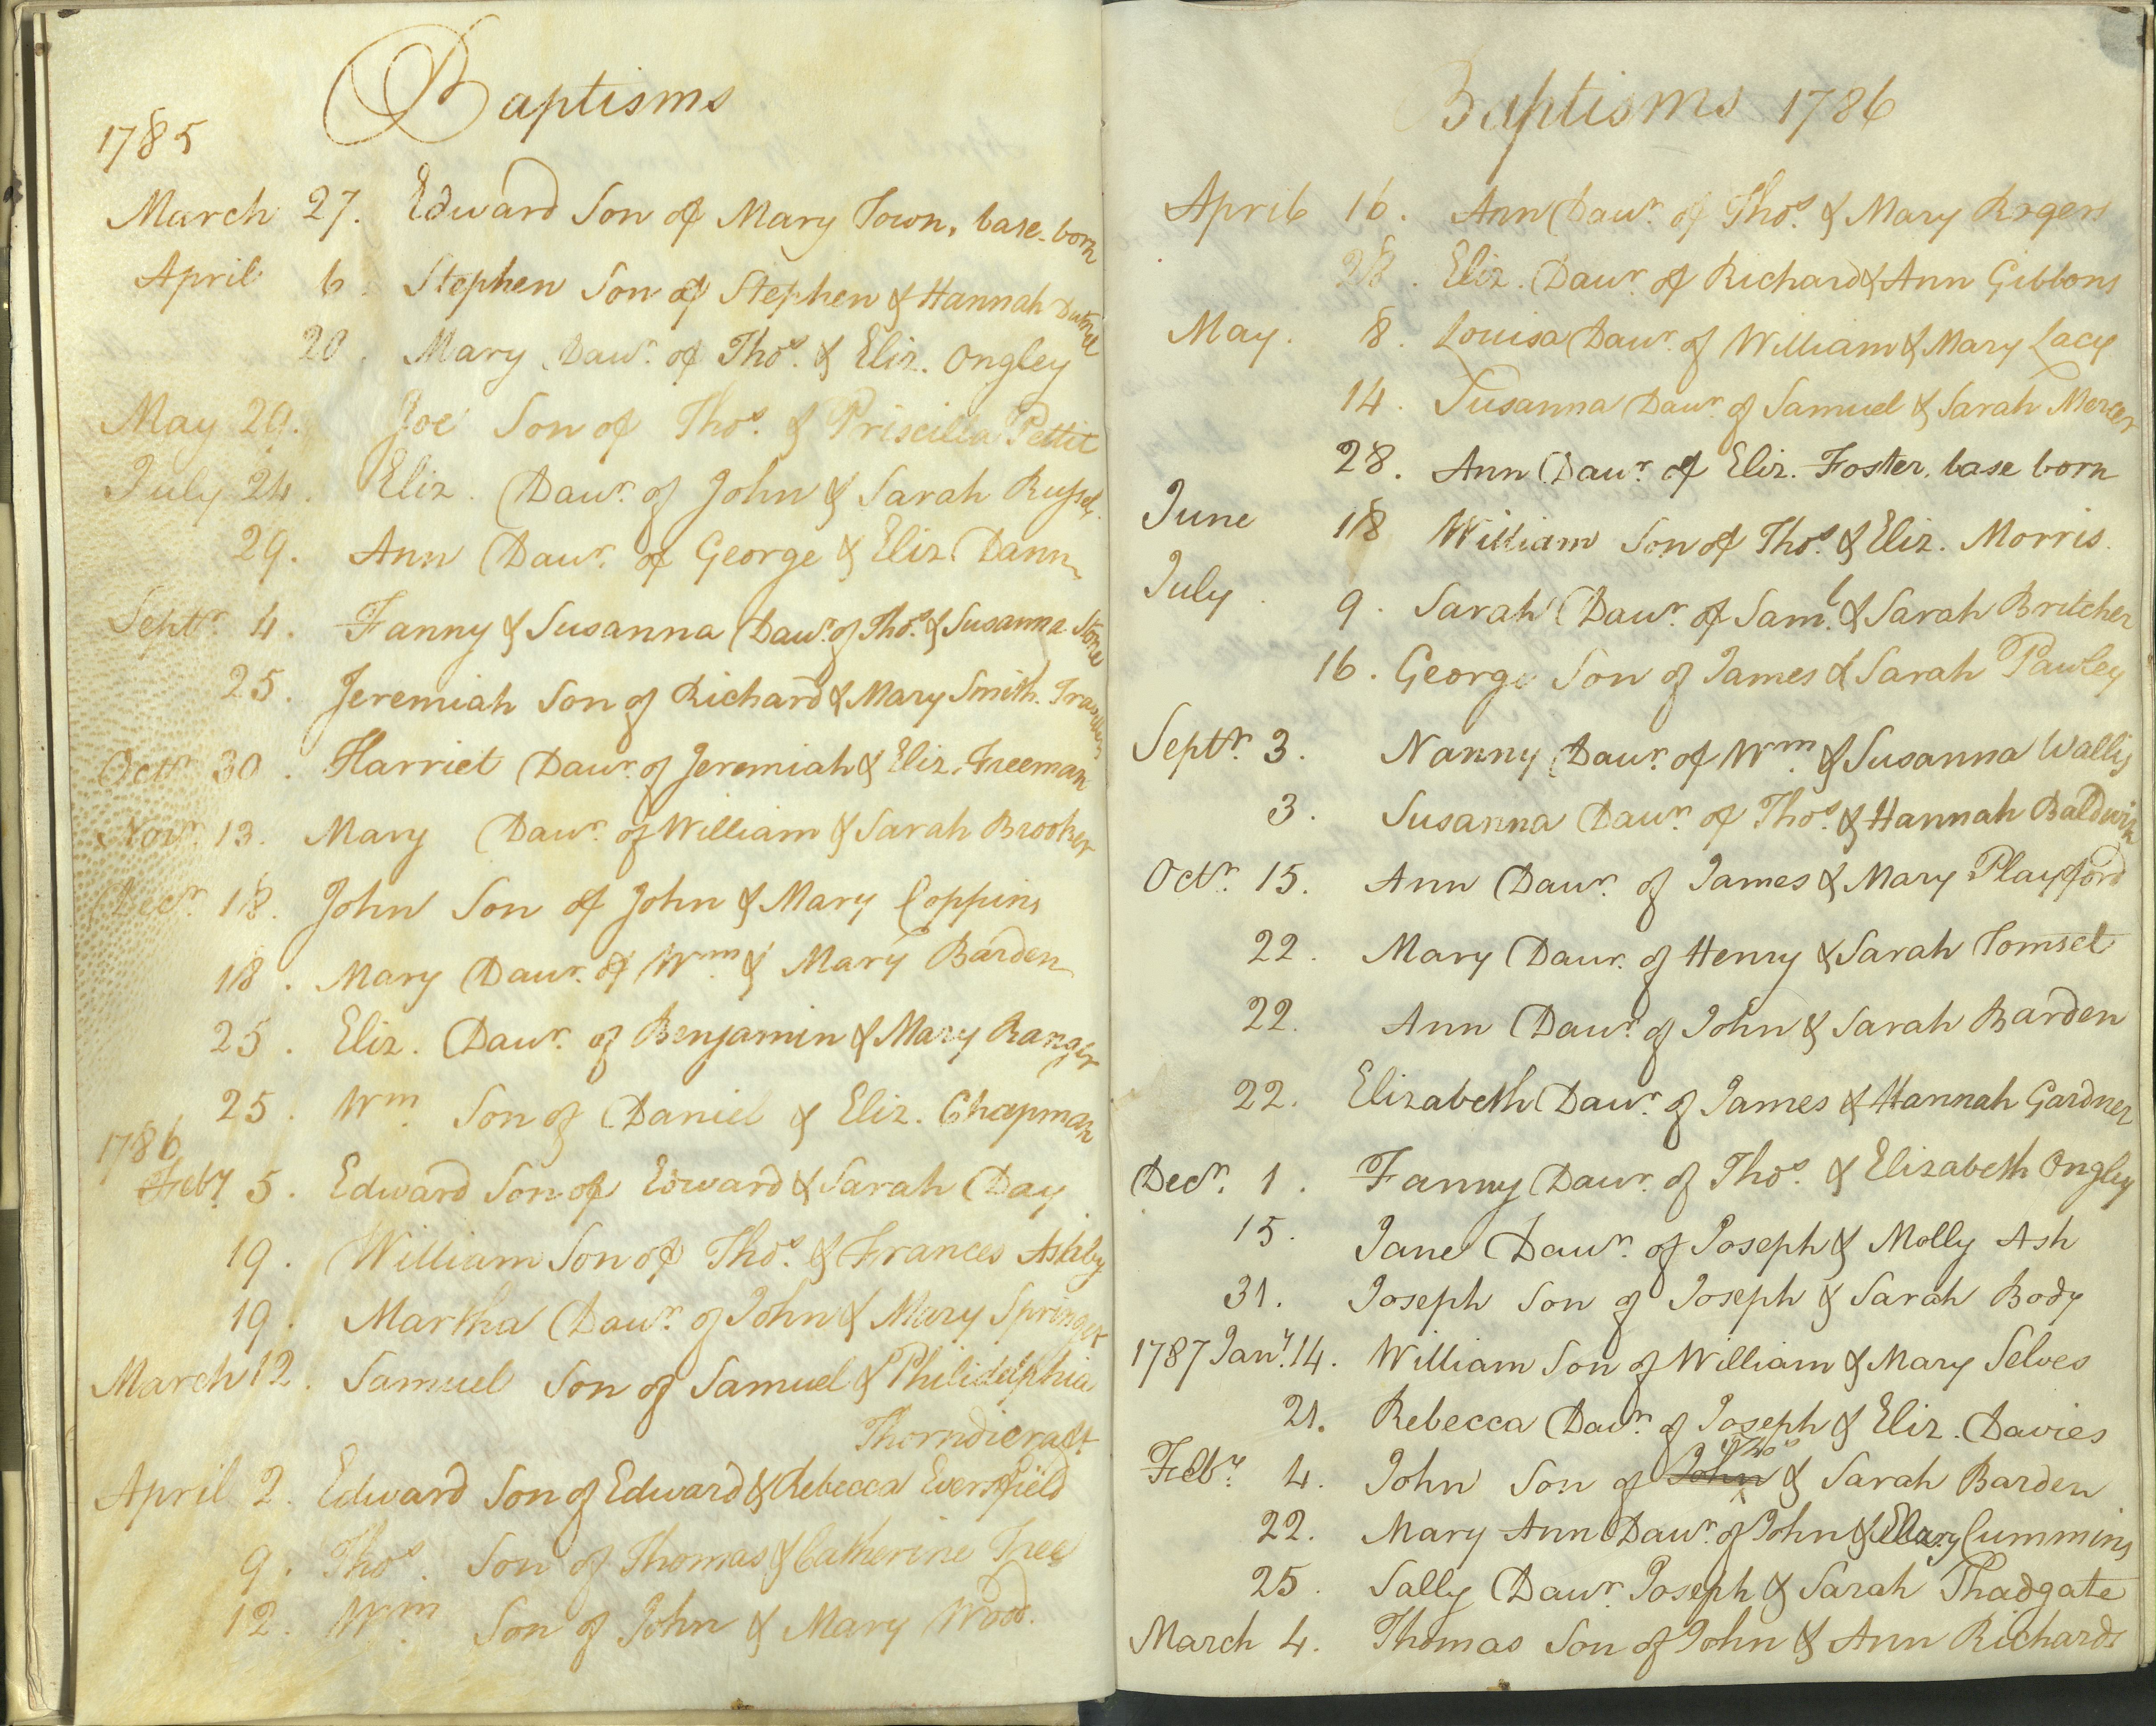 Baptisms
1785
March 27. Edward Son of Mary Town, base-born
April 6. Stephen Son of Stephen & Hannah
20. Mary Dawr. of Thos. & Eliz. Ongley
May 29. Joe Son of Thos. & Priscilla Pettit
July 24. Eliz. Dawr. of John & Sarah Russel
29. Ann Dawr. of George & Eliz Dann
Septr. 4. Fanny & Susanna Dawrs. of Thos. & Susanna Stone
25. Jeremiah Son of Richard & Mary Smith.
Octr. 30. Harriet Dawr. of Jeremiah & Eliz. Freeman
Novr. 13. Mary Dawr. of William & Sarah Brooker
Decr. 18. John Son of John & Mary Coppins
18. Mary Dawr. of Wm. & Mary Barden
25. Eliz. Dawr. of Benjamin & Mary Ranger
25. Wm. Son of Daniel & Eliz. Chapman
1786
Feby 5. Edward Son of Edward & Sarah Day
19. William Son of Thos. & Frances Ashby
19. Martha Dawr. of John & Mary Springer
March 12. Samuel Son of Samuel & Philidelphia
Thorndicraft
April 2. Edward Son of Edward & Rebecca Eversfield
9. Thos. Son of Thomas & Catherine Tree
12. Wm. Son of John & Mary Wood.
Baptisms 1786
April 16. Ann Dawr. of Thos. & Mary Rogers
28. Eliz. Dawr. of Richard & Ann Gibbons
May. 8. Louisa Dawr. of William & Mary Lacy
14. Susanna Dawr. of Samuel & Sarah Mercer
28. Ann Dawr. of Eliz. Foster, base born
June 18 William Son of Thos. & Eliz. Morris.
July 9. Sarah Dawr. of Saml. & Sarah Britcher
16. George Son of James & Sarah Pawley
Septr. 3. Nanny Dawr. of Wm. & Susanna Wallis
3. Susanna Dawr. of Thos. & Hannah Baldwin
Octr. 15. Ann Dawr. of James & Mary Playford
22. Mary Dawr. of Henry & Sarah Tomset
22. Ann Dawr. of John & Sarah Barden
22. Elizabeth Dawr. of James & Hannah Gardner
Decr. 1. Fanny Dawr. of Thos. & Elizabeth Ongley
15. Jane Dawr. of Joseph & Molly Ash
31. Joseph Son of Joseph & Sarah Body
1787 Jany. 14. William Son of William & Mary Selves
21. Rebecca Dawr. of Joseph & Eliz. Davies
Feby. 4. John Son of John Thos & Sarah Barden
22. Mary Ann Dawr. of John & Mary Cummins
25. Sally Dawr. Joseph & Sarah Thadgate
March 4. Thomas Son of John & Ann Richards